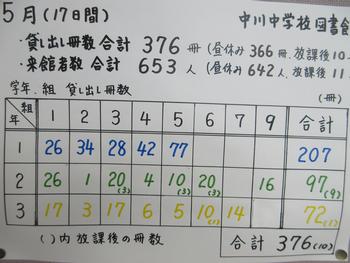 5月(17日間) 中川中学校 図書館
・貸し出し冊数 合計 376 冊 (昼休み 366 冊、放課後 10
・来館者数 合計 653 人 (昼休み 642 人、放課後 11
学年、組 貸し出し冊数 (冊)
組 年 1 2 3 4 5 6 7 9 合計
1 26 34 28 42 77 207
2 26 1 20(3) 4 10(3) 20(3) 16 97(9)
3 17 3 17 6 5 10(1) 14 72(1)
( )内 放課後の冊数 合計 376(10)